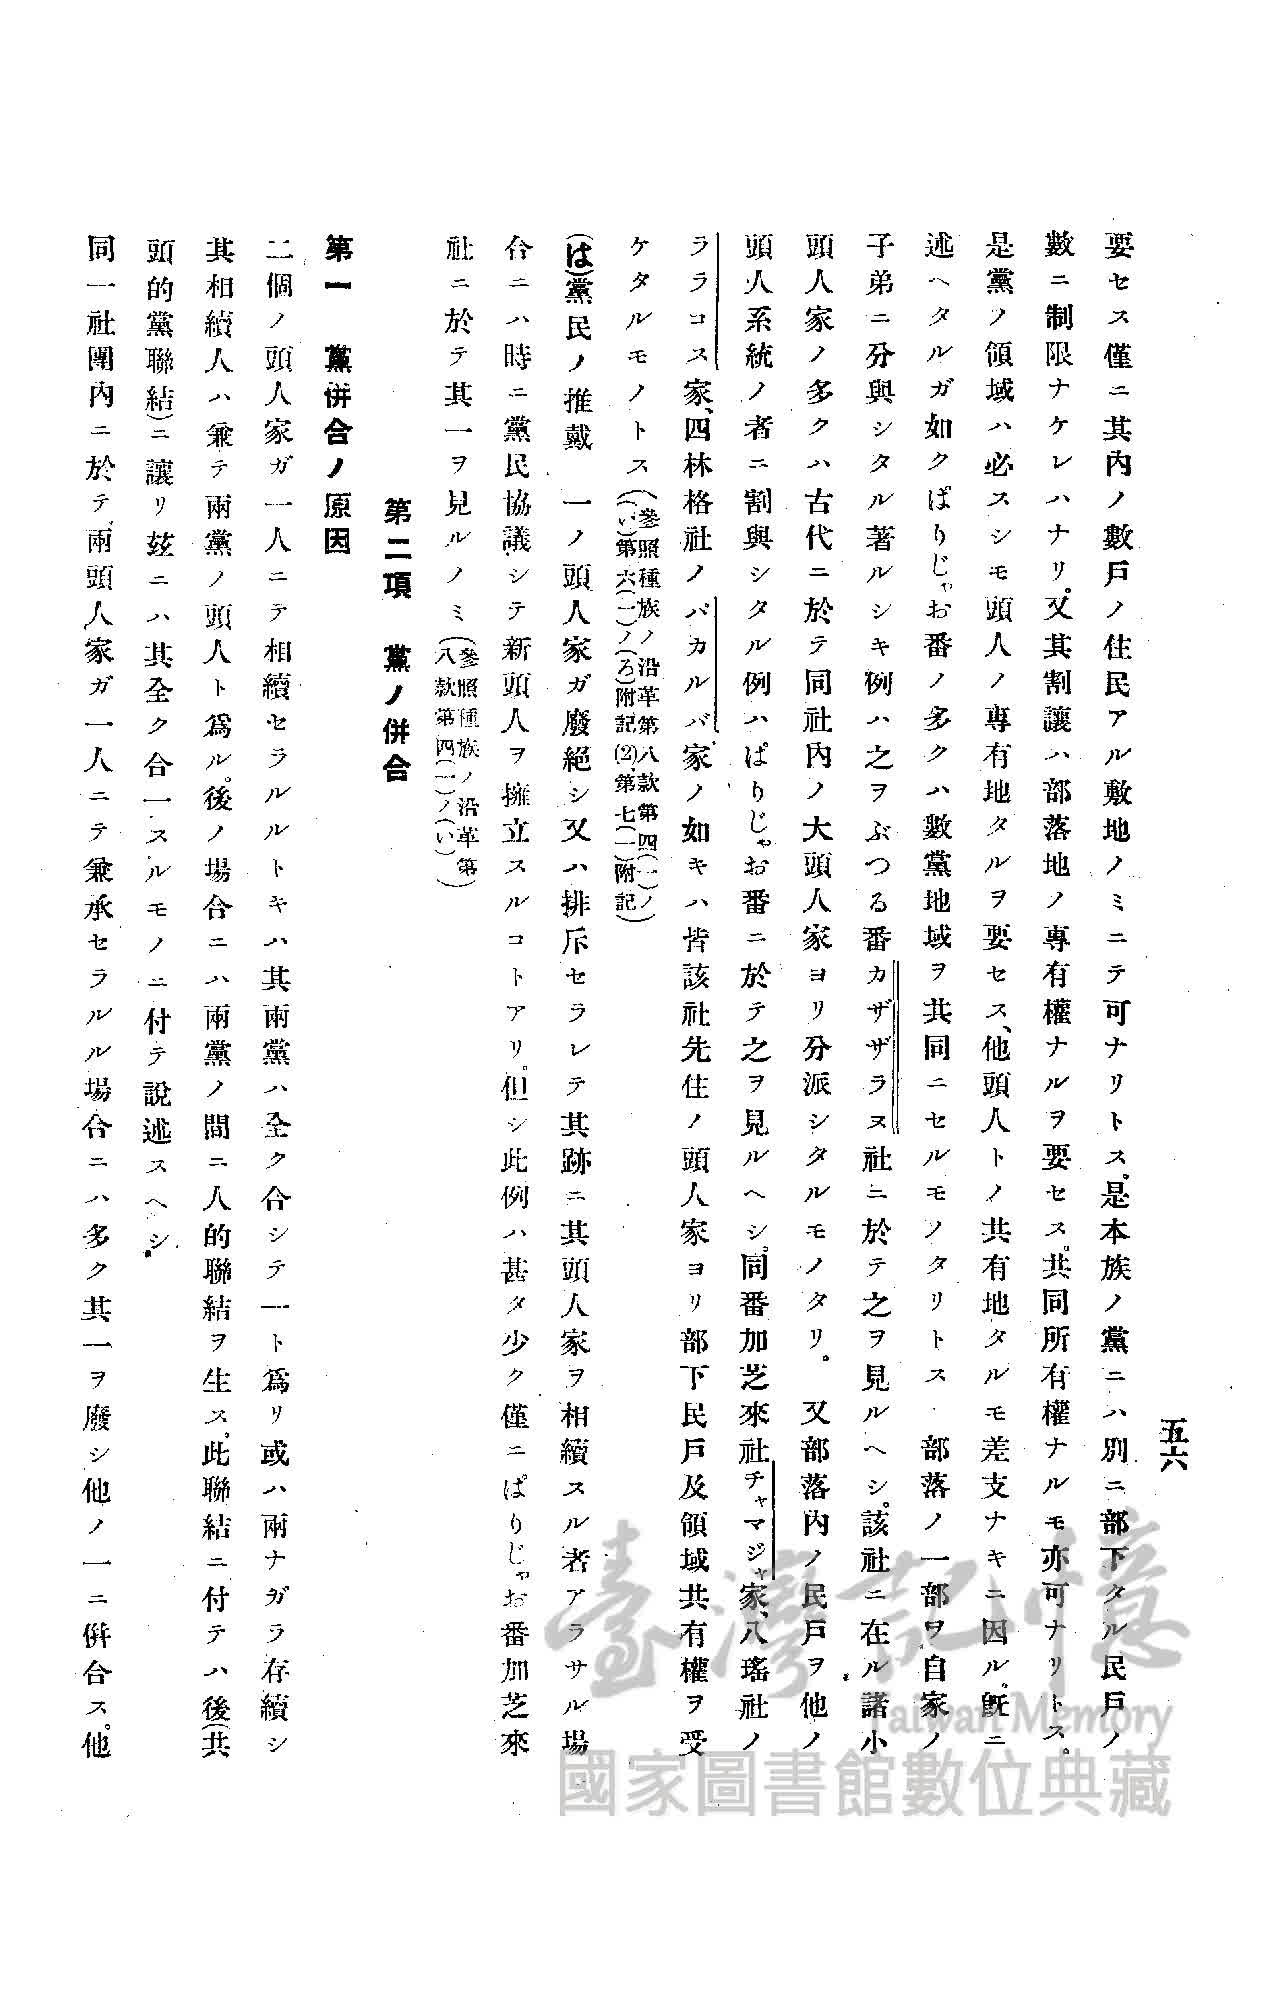 五六
要セス僅ニ其內ノ數戶ノ住民アル敷地ノミニテ可ナリトス。是本族ノ黨ニハ別ニ部下タル民戶ノ
數ニ制限ナケレハナリ。又其割讓ハ部落地ノ專有權ナルヲ要セス。共同所有權ナルモ亦可ナリトス。
是黨ノ領域ハ必スシモ頭人ノ專有地タルヲ要セス、他頭人トノ共有地タルモ差支ナキニ因ル。旣ニ
述ヘタルガ如クぱりじゃお番ノ多クハ數黨地域ヲ共同ニセルモノタリトス 部落ノ一部ヲ自家ノ
子弟ニ分與シタル著ルシキ例ハ之ヲぶつる番カザザラヌ社ニ於テ之ヲ見ルヘシ。該社ニ在ル諸小
頭人家ノ多クハ古代ニ於テ同社內ノ大頭人家ヨリ分派シタルモノタリ。 又部落內ノ民戶ヲ他ノ
頭人系統ノ者ニ割與シタル例ハぱりじゃお番ニ於テ之ヲ見ルヘシ。同番加芝來社チャマジャ家、八瑤社ノ
ララコス家、四林格社ノバカルバ家ノ如キハ皆該社先住ノ頭人家ヨリ部下民戶及領域共有權ヲ受
ケタルモノトス(參照種族ノ沿革第八款第四(一)ノ
(い)第六(一)ノ(ろ)附記(2)、第七(一)附記)
(は)黨民ノ推戴 一ノ頭人家ガ廢絕シ又ハ排斥セラレテ其跡ニ其頭人家ヲ相續スル者アラサル場
合ニハ時ニ黨民協議シテ新頭人ヲ擁立スルコトアリ。但シ此例ハ甚タ少ク僅ニぱりじゃお番加芝來
社ニ於テ其一ヲ見ルノミ(參照種族ノ沿革第
八款第四(一)ノ(い))
第二項 黨ノ併合
第一 黨併合ノ原因
二個ノ頭人家ガ一人ニテ相續セラルルトキハ其兩黨ハ全ク合シテ一ト爲リ或ハ兩ナガラ存續シ
其相續人ハ兼テ兩黨ノ頭人ト爲ル。後ノ場合ニハ兩黨ノ間ニ人的聯結ヲ生ス。此聯結ニ付テハ後(共
頭的黨聯結)ニ讓リ玆ニハ其全ク合一スルモノニ付テ說述スヘシ。
同一社團內ニ於テ兩頭人家ガ一人ニテ兼承セラルル場合ニハ多ク其一ヲ廢シ他ノ一ニ併合ス。他
臺灣記憶
Taiwan Memory
國家圖書館數位典藏